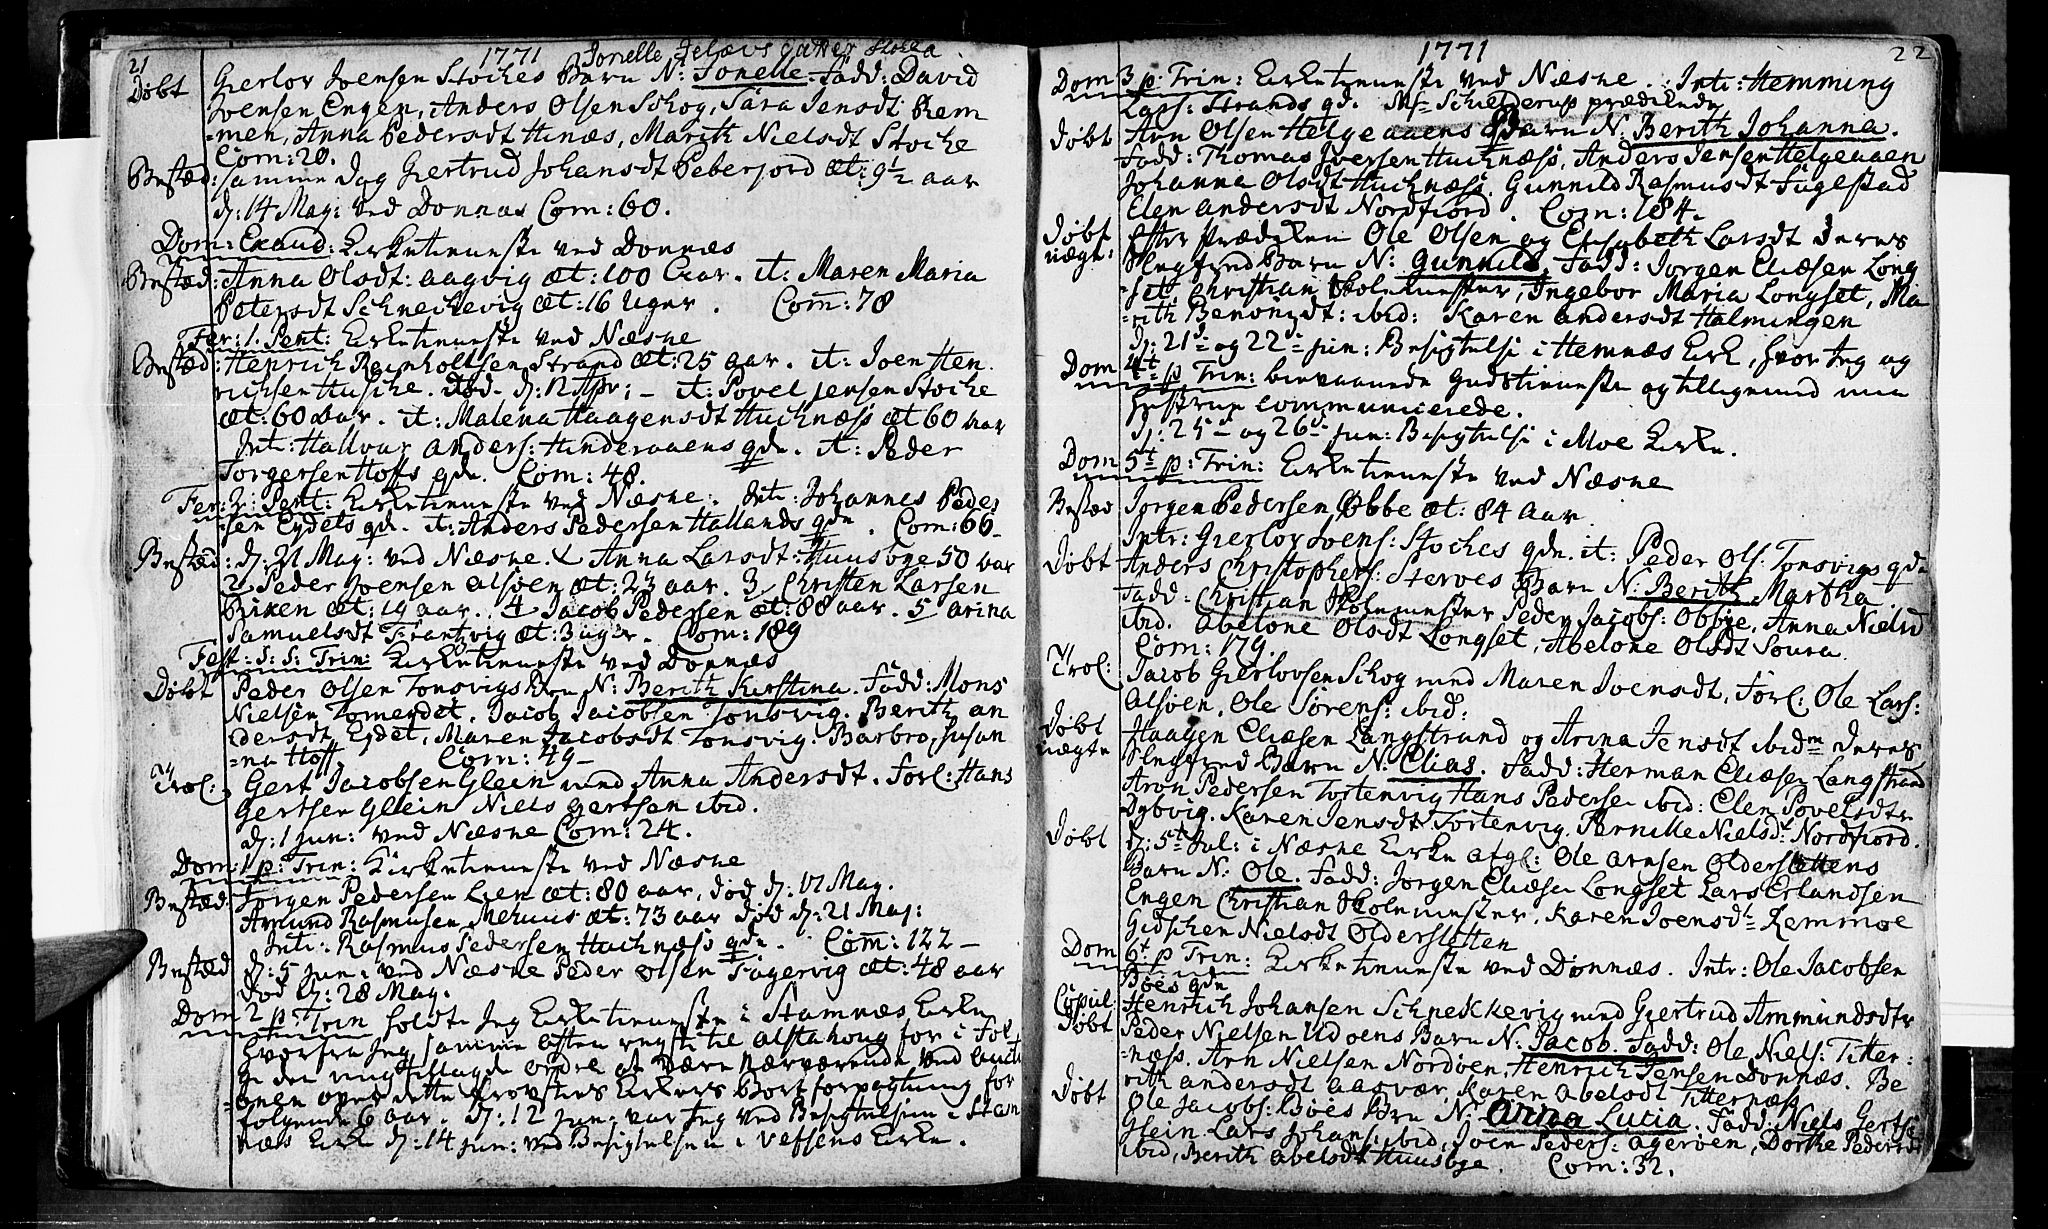 21
1771
Døbt Gierlov Joensen Stoches Barn N: Jonelle. Fadd: David
Joensen Engen, Anders Olsen Schog, Sara Jensdt Rem
=men, Anna Pedersdt Hinæs, Marith Nielsdt Stoche
Com: 20.
Bested: samme dag Giertrud Johansdt Peberjord æt: 9½ aar
d: 14 May: ved Dønnæs Com: 60.
Dom: Exaud: Kirketieneste ved Dønnæs
Bested: Anna Olsdt: aagvig æt: 100 aar. it: Maren Maria
Petersdt Schneckevig æt: 16 Uger. Com: 78
Fer: 1. Pent: Kirketieneste ved Næsne
Bested: Henrich Reinholtsen Strand æt: 25 aar. it: Joen Hen
richsen Husche. død d: 12 Apr: - it: Povel Jensen Stoche
æt: 60 aar. it: Malena Haagensdt Huchnæss æt 60 aar
Int: Hallvar Anders: Hinderaaens qde. it: Peder
Torgersen Hoffs qde. Com: 48.
Fer: 2. Pent: Kirketieneste ved Næsne. Int: Johannes Peder
=sen Eydets qde. it: Anders Pedersen Hallands qde. Com: 66
Bested: d: 21 May: ved Næsne. 1 Anna Larsdt: Huusbye 50 aar
2 Peder Joensen Alsøen æt: 23 aar. 3 Christen Larsen
Riken æt: 19 aar. 4 Jacob Pedersen æt: 88 aar. 5 Arina
Samuelsdt Frantzvig æt: 3 uger. Com: 189
Fest: S: S: Trin: Kirketieneste ved Dønnæs
Døbt Peder Olsen Tonsvigs Brn N: Berith Kirstina. Fadd: Mons
Nielsen Tomerdet. Jacob Jacobsen Tonsvig. Berith An
dersdt Eydet, Maren Jacobsdt Tonsvig. Barbro Susan
=na Hoff Com: 49-
Trol: Gert Jacobsen Glein med Anna Andersdt. Forl: Hans
Gertsen Glein Niels Gertsen ibid.
d: 1 Jun: ved Næsne Com: 24.
Dom: 1 p: Trin: Kirketieneste ved Næsne
Bested: Jørgen Pedersen Lien æt: 80 aar, død d: 12 May.
Amund Rasmusen Mehuus æt: 73 aar død d: 21 May:
Intr: Rasmus Pedersen Huchnæss qde. Com: 122-
Bested d: 5 Jun: ved Næsne Peder Olsen Fagervig æt: 48 aar
død d: 28 May.
Dom 2 p: Trin holdte Jeg Kirketieneste i Stamnæs Kirke
hvorfra Jeg samme aften reyste til Alstahoug for i Føl
ge den mig tillagde ordre at være nærværende ved aucti
=onen over dette Provsties Kirkers Bortforpagtning for
følgende 6 aar. d: 12 Jun: var Jeg ved Besigtelsen i Stam
næs Kirke d: 14 Jun: ved Besigtelsen i Vefsens Kirke.
1771
22
Dom 3 p: Trin: Kirketieneste ved Næsne. Intr: Hemming
Lars: Strands qde. Mr Schielderup prædikede
Døbt Arn Olsen Helgeaaens Barn N. Berith Johanna.
Fadd: Thomas Iversen Huchnæss, Anders Jensen Helgeaaen
Johanna Olsdt Huchnæss. Gunnild Rasmusdt Fagestad
Elen Andersdt Nordfiord. Com: 184.
Døbt uægte: Efter Prædiken Ole Olsen og Elisabeth Larsdt deres
Slegfred Barn N: Gunnild, Fadd: Jørgen Eliæsen Long
=set Christian Skolemester, Ingebor Maria Longset, Ma
=rith Benonsdt: ibid: Karen Andersdt Halmingen
d: 21de og 22de Jun: Besigtelse i Hemnæs Kirk, hvor Jeg og
Dom 4t p Trin: bievaanede Gudstieneste og tilligemed min
Hustrue communicerede.
d: 25de og 26de Jun: Besigtelse i Moe Kirke.
Dom 5t p: Trin: Kirketieneste ved Næsne
Bested Jørgen Pedersen Øbbe æt: 84 aar.
Intr: Gierlov Joens: Stoches qde. it: Peder Ols: Tonsvigs qde
Døbt Anders Christophers: Sterves Barn N. Berith Martha.
Fadd: Christian Skolemester Peder Jacobs: Obbye, Anna Nielsd
ibid. Abelone Olsdt Longset, Abelone Olsdt Soura.
Com: 179.
Trol: Jacob Gierlovsen Schog med Maren Joensdt, Forl: Ole Lars:
Alsøen, Ole Sørens: ibid:
Døbt uægte Haagen Eliæsen Langstrand og Arina Jensdt ibidm deres
Slegfred Barn N: Elias. Fadd: Herman Eliæsen Langstrand
Aron Pedersen Tortenvig Hans Pedersen ibid: Elen Povelsdtr
Dybvig. Karen Jensdt Tortenvig. Pernille Nielsdt Nordfiord.
Døbt d: 5t Jul: i Næsne Kirke afgl: Ole Arnsen Olderslettens
Barn N: Ole. Fadd: Jørgen Eliæsen Longset Lars Erlandsen
Engen Christian Skolemester. Karen Joensdt Remmoe
Gidschen Nielsdt Oldersletten
Dom 6t p Trin: Kirketieneste ved Dønnæs. Intr: Ole Jacobsen
Bøes qde
Copul: Henrich Johansen Schnekkevig med Giertrud Ammundsdtr
Døbt Peder Nielsen Udøens Barn N: Jacob. Fadd: Ole Niels: Titter=
=næss. Arn Nielsen Nordøen, Henrich Jensen Dønnæs. Be
rith Andersdt Aasvær, Karen Abelsdt Titternæss
Døbt Ole Jacobs: Bøes Brn N: Anna Lucia. Fadd: Niels Gertse
Glein Lars Johans: ibid, Joen Peders: Agerøen, Dorthe Pedersdt
ibid, Berith Abelsdt Huusbye. Com: 32.